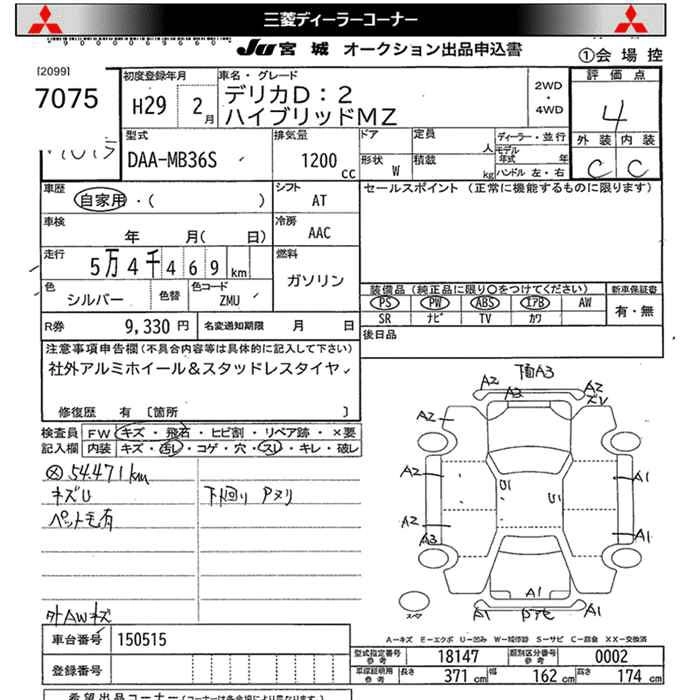 三菱ディーラーコーナー
JU 宮城 オークション出品申込書 ①会場控
[2099]
7075
初度登録年月 H29 2月
車名・グレード デリカD:2
ハイブリッドMZ
2WD
・
4WD
評価点
4
外装 内装
C C
型式 DAA-MB36S
排気量 1200 cc
ドア 定員 人
形状 W 積載 kg
ディーラー・並行
モデル年式 年
ハンドル 左・右
車歴 自家用・( )
シフト AT
セールスポイント (正常に機能するものに限ります)
車検 年 月( 日)
冷房 AAC
走行 5万4千469km
燃料 ガソリン
色 シルバー 色替 色コード ZMU
装備品(純正品に限り〇をつけてください) 新車保証書
PS PW ABS エアB AW 有・無
SR ナビ TV カワ
R券 9,330円 名変通知期限 月 日
後日品
注意事項申告欄(不具合内容等は具体的に記入して下さい)
社外アルミホイール&スタッドレスタイヤ
修復歴 有 〔箇所 〕
検査員 FW キズ・飛石・ヒビ割・リペア跡・×要
記入欄 内装 キズ・汚レ・コゲ・穴・スレ・キレ・破レ
54.471km
キズU
ペット毛有
下回り Pヌリ
外AWキズ
下面A3
A2 A3 A2
A2
A2 A1
A2 A1
A3
A1
A1 A1
スペア
A-キズ E-エクボ U-凹み W-補修跡 S-サビ C-腐食 XX-交換済
車台番号 150515
登録番号
型式指定番号 参考 18147 類別区分番号 参考 0002
車庫証明用 参考 長さ 371 cm 幅 162 cm 高さ 174 cm
希望出品コーナー